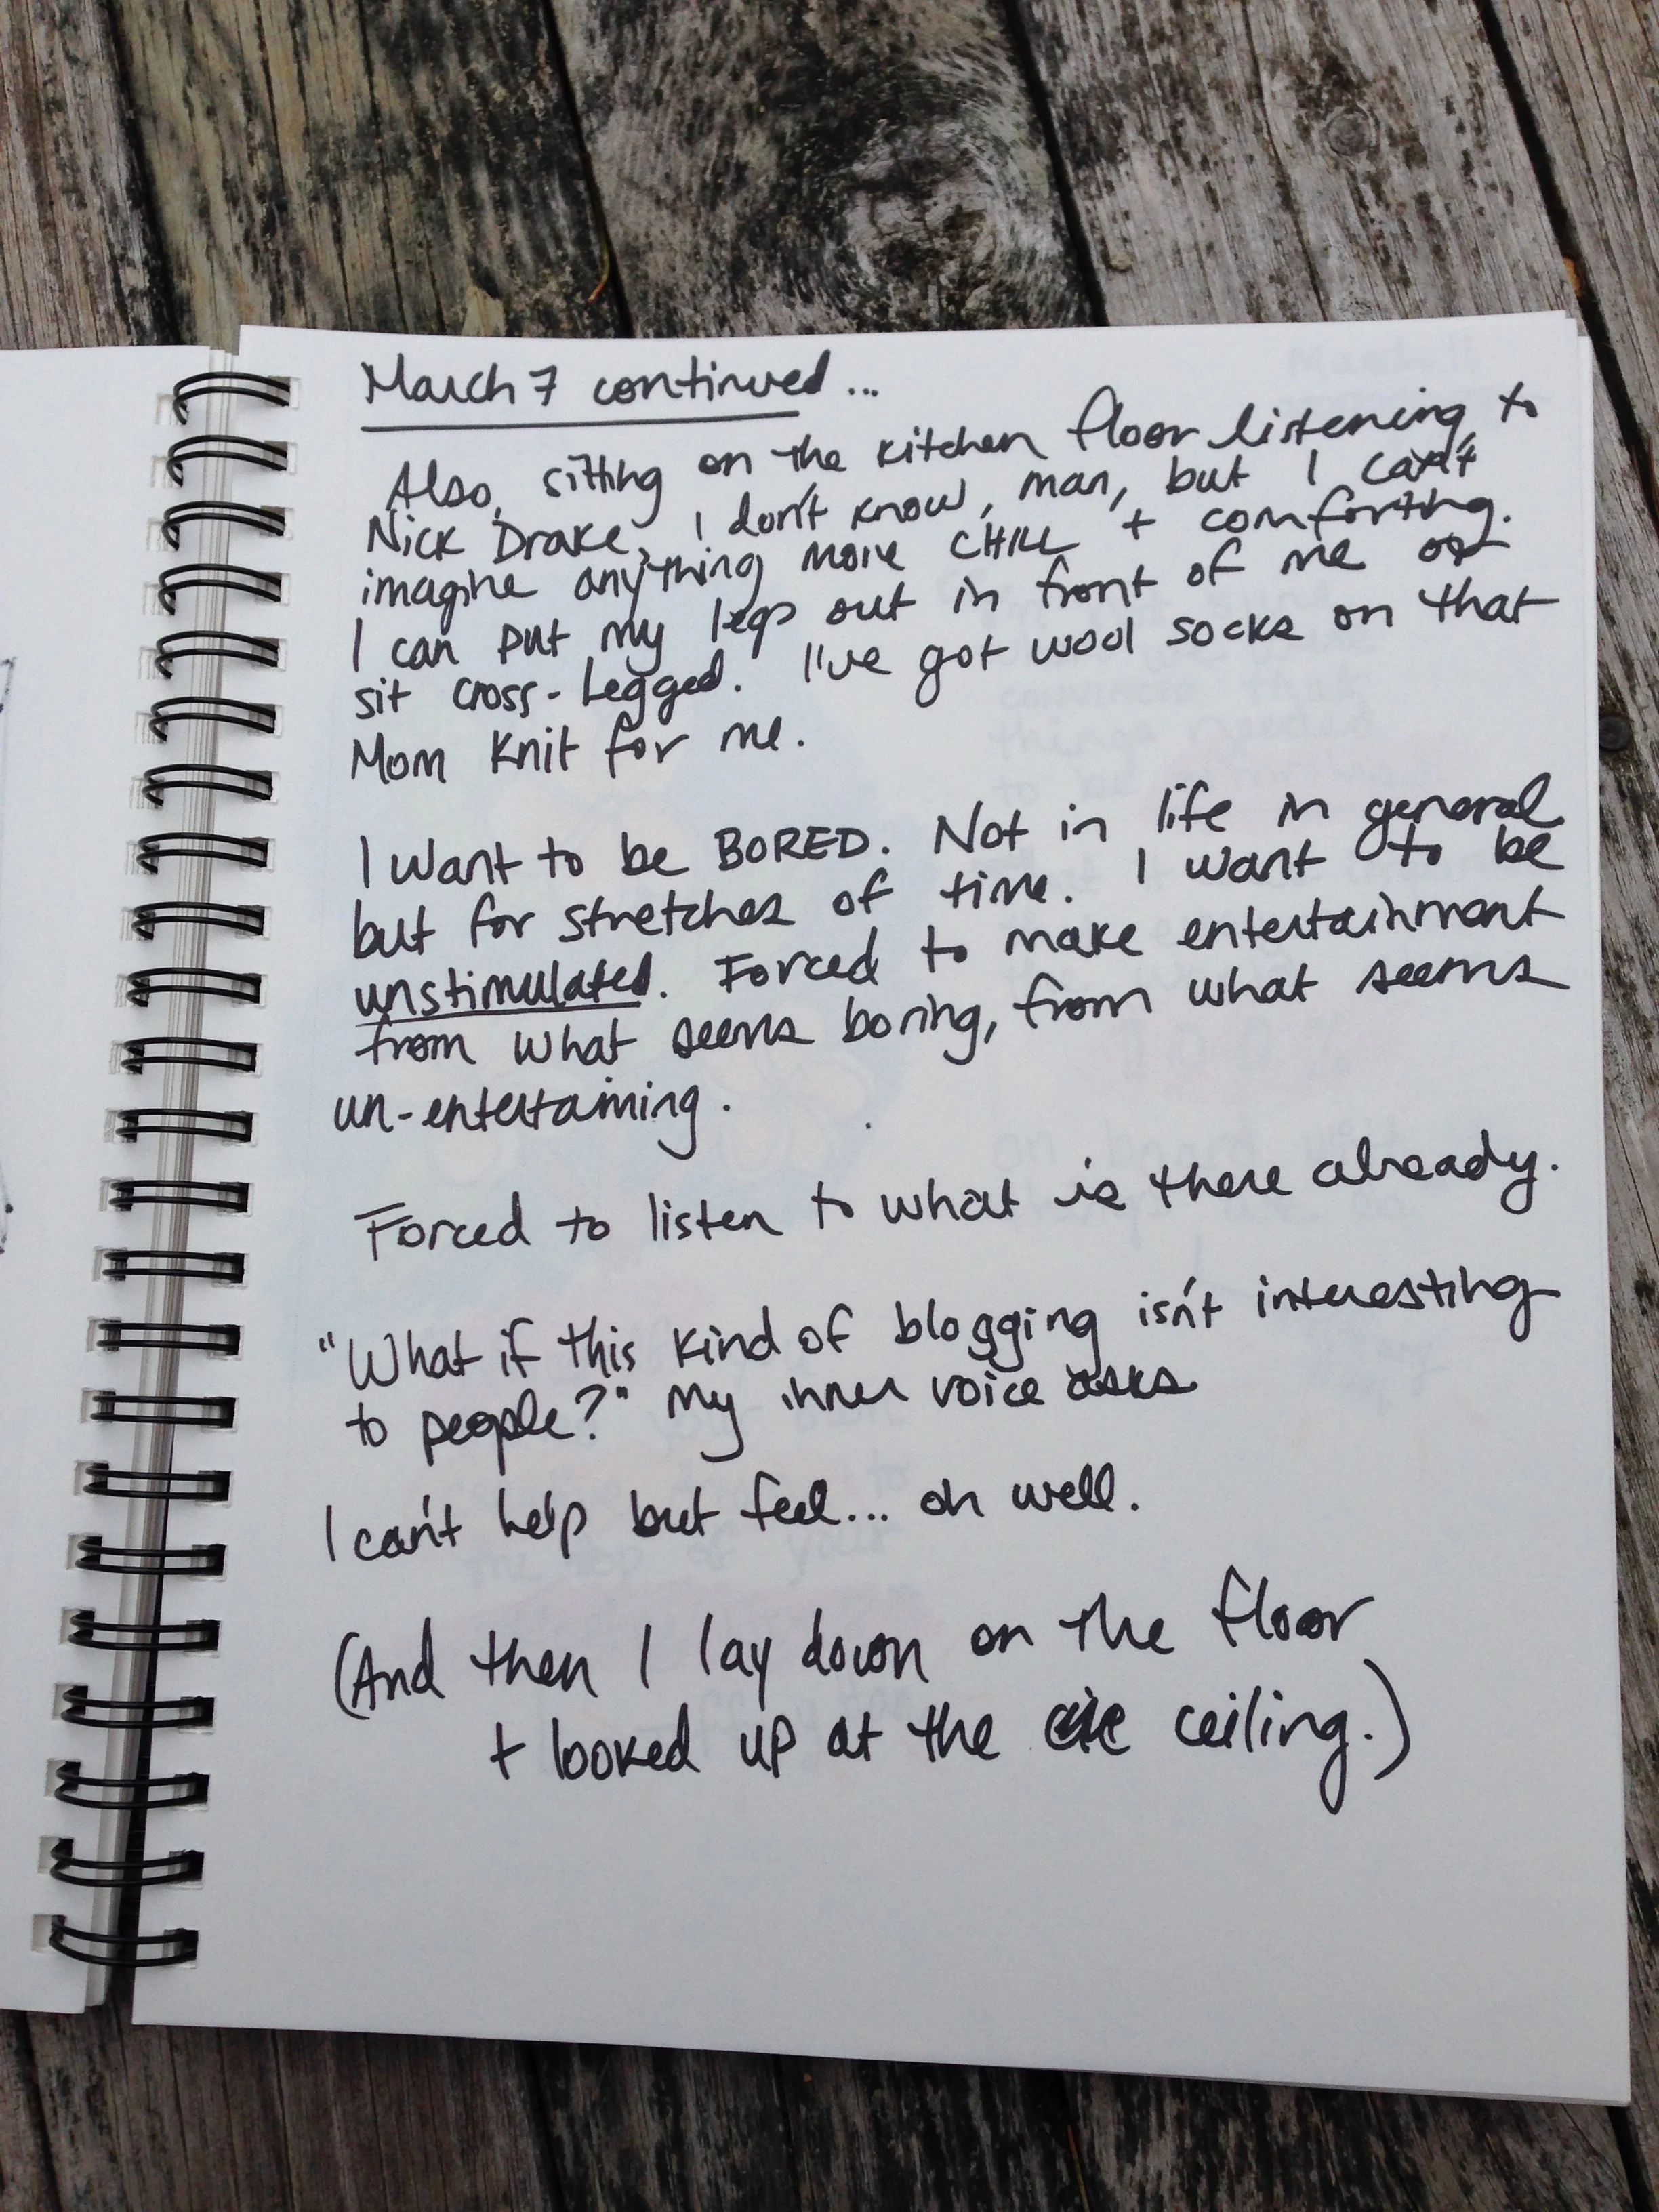 March 7 continued...
Also, sitting on the kitchen floor listening to
Nick Drake, I don't know, man, but I can't
imagine anything more CHILL + comforting.
I can put my legs out in front of me or
sit cross-legged. I've got wool socks on that
Mom knit for me.
I want to be BORED. Not in life in general
but for stretches of time. I want to be
unstimulated. Forced to make entertainment
from what seems boring, from what seems
un-entertaining.
Forced to listen to what is there already.
"What if this kind of blogging isn't interesting
to people?" my inner voice asks
I can't help but feel... oh well.
(And then I lay down on the floor
+ looked up at the ceiling.)